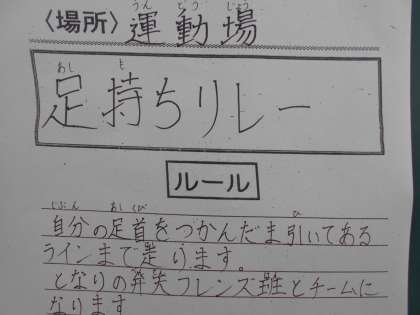 〈場所〉運動場
足持ちリレー
ルール
自分の足首をつかんだま引いてある
ラインまで走ります。
となりの発笑フレンズ班とチームに
なります